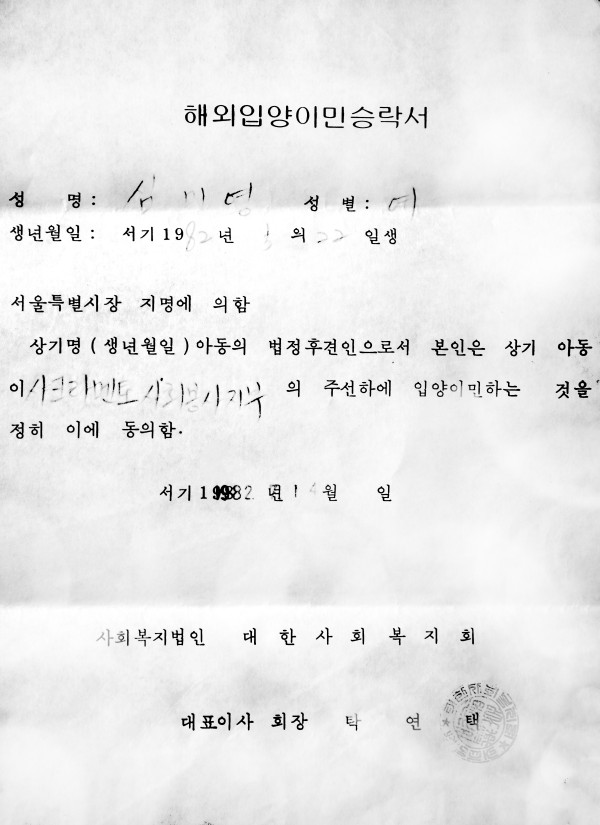 해외입양이민승락서
성 명: 심 미 영 성 별: 여
생년월일: 서기 1982 년 의 22 일생
서울특별시장 지명에 의함
상기명 (생년월일) 아동의 법정후견인으로서 본인은 상기 아동
이 의 주선하에 입양이민하는 것을
정히 이에 동의함.
서기 1982 년 월 일
사회복지법인 대 한 사 회 복 지 회
대표이사 회장 탁 연 택